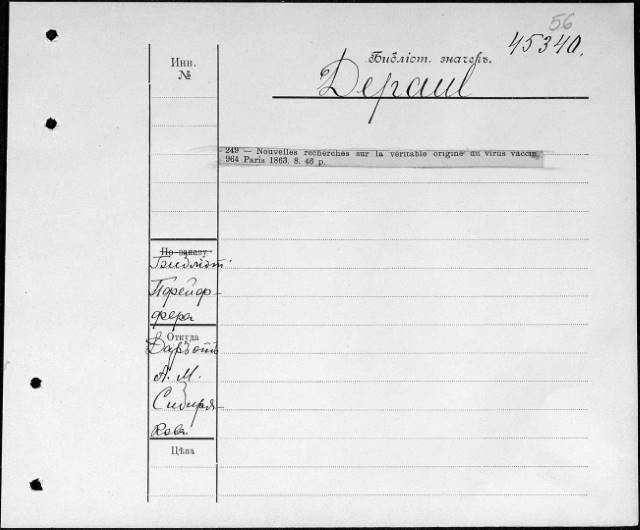 56
45340.
Инв.
№
Библіот. значекъ.
Depaul
249 — Nouvelles recherches sur la véritable origine du virus vaccin,
964 Paris 1863. 8. 46 p.
По заказу
Библіот.
Пфейф-
фера
Откуда
Даръ отъ
А. М.
Сибиря-
кова
Цѣна